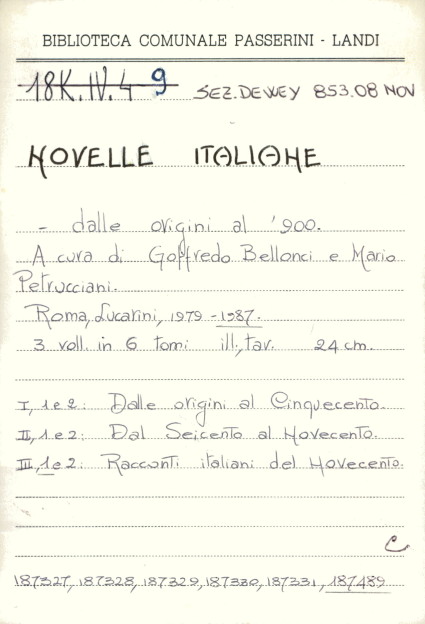 BIBLIOTECA COMUNALE PASSERINI - LANDI
18K.IV.49 SEZ.DEWEY 853.08 NOV
NOVELLE ITALIANE
- dalle origini al '900.
A cura di Goffredo Bellonci e Mario
Petrucciani.
Roma, Lucarini, 1979 -1987.
3 voll. in 6 tomi ill., tav. 24 cm.
I, 1 e 2: Dalle origini al Cinquecento.
II, 1 e 2: Dal Seicento al Novecento.
III, 1 e 2: Racconti italiani del Novecento.
C
187327, 187328, 187329, 187330, 187331, 187489